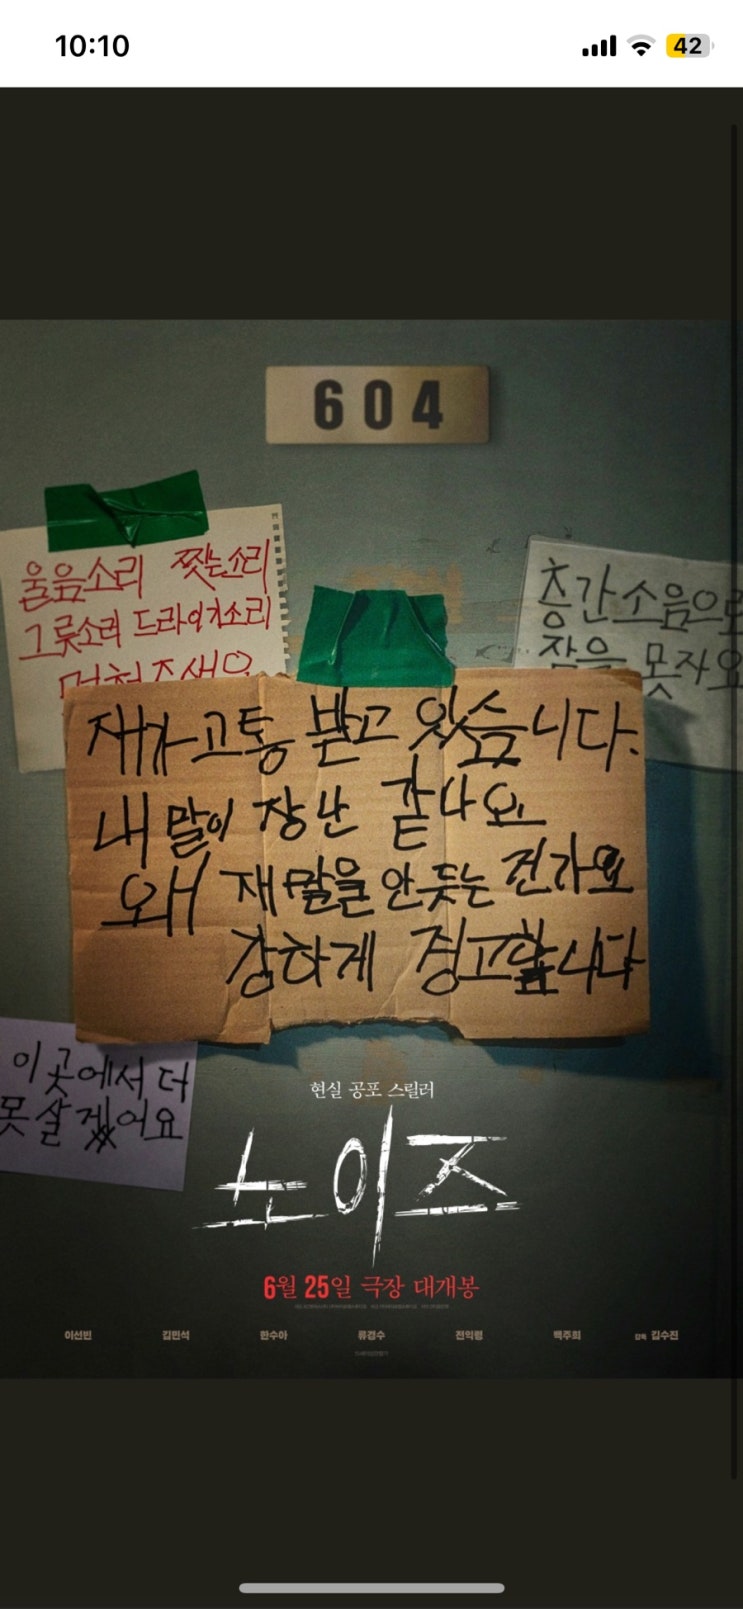 10:10
42
604
울음소리 찢는소리
그릇소리 드라이기소리
멈춰주세요
층간소음으로
잠을 못자요
재가 고통 받고 있습니다.
내 말이 장난 같나요
왜 재 말을 안 듯는 건가요
강하게 경고합니다
이곳에서 더
못살겠어요
현실 공포 스릴러
노이즈
6월 25일 극장 대개봉
이선빈 김민석 한수아 류경수 전익령 백주희 감독 김수진